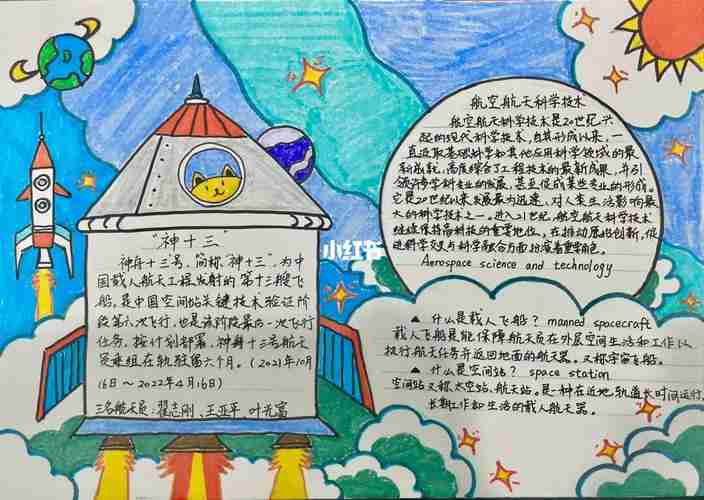 "神十三"
神舟十三号,简称"神十三",为中
国载人航天工程发射的第十三艘飞
船,是中国空间站关键技术验证阶
段第六次飞行,也是该阶段最后一次飞行
任务,按计划部署,神舟十三号航天
员乘组在轨驻第六个月。(2021年10月
16日~2022年4月16日)
三名航天员:翟志刚、王亚平 叶光富
小红书
航空航天科学技术
航空航天科学技术是20世纪兴
起的现代科学技术,自其形成以来,一
直汲取基础科学和其他应用科学领域的最
新成就,高度综合了工程技术的最新成果,并引
领许多学科专业的发展,甚至促成某些专业的形成。
它是20世纪以来发展最为迅速、对人类生活影响最
大的科学技术之一。进入21世纪,航空航天科学技术
继续保持高科技的重要地位,在推动原始创新,促
进科学交叉与科学融合方面扮演着重要角色。
Aerospace science and technology
▲ 什么是载人飞船? manned spacecraft
载人飞船是能保障航天员在外层空间生活和工作以
执行航天任务并返回地面的航天器。又称宇宙飞船。
▲ 什么是空间站? space station
空间站又称太空站、航天站。是一种在近地轨道长时间运行,
长期工作和生活的载人航天器。